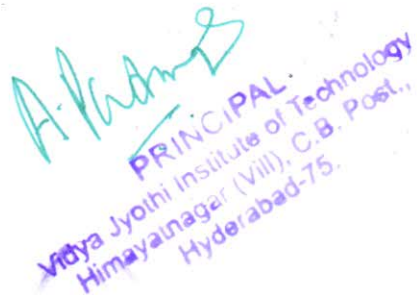 PRINCIPAL
Vidya Jyothi Institute of Technology
Himayatnagar (Vill), C.B. Post.,
Hyderabad-75.